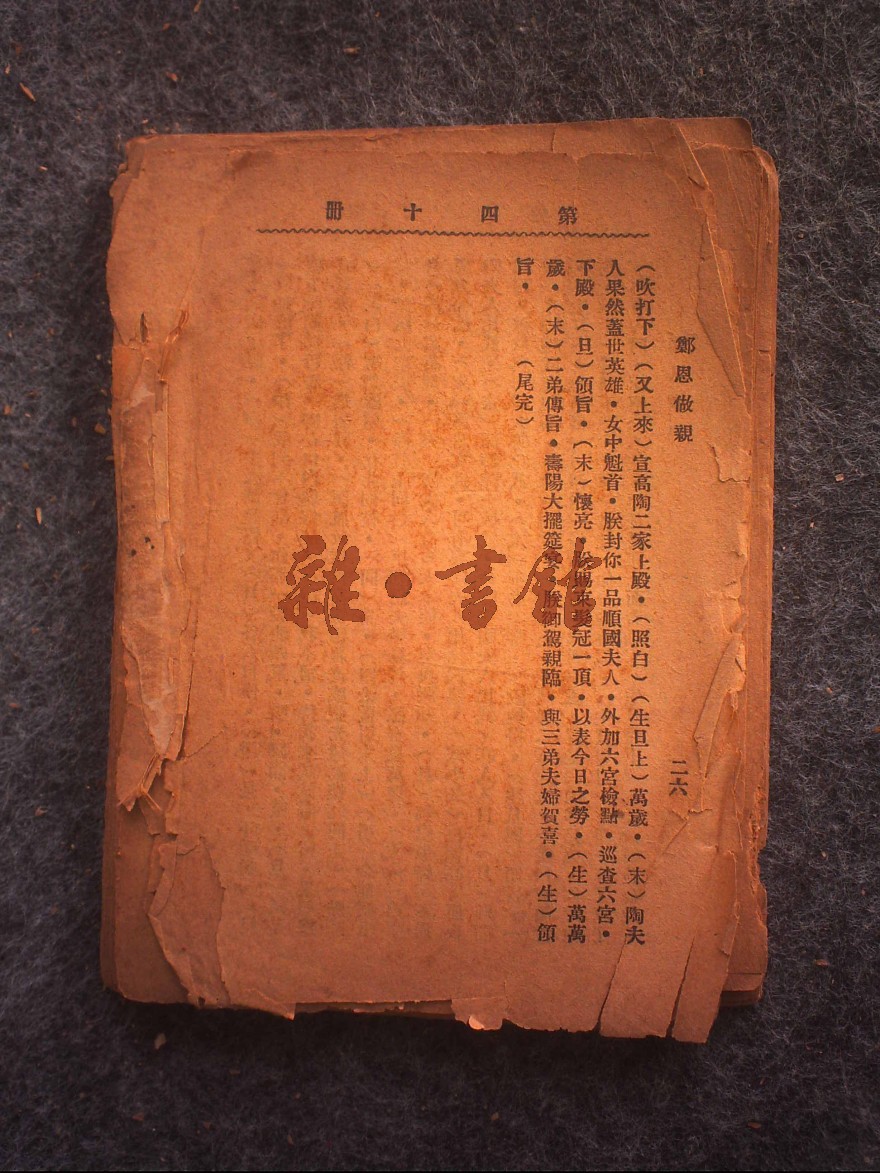 第四十冊
鄭恩做親
二六
（吹打下）（又上來）宣高陶二家上殿・（照白）（生旦上）萬歲・（末）陶夫
人果然蓋世英雄・女中魁首・朕封你一品順國夫人・外加六宮檢點・巡查六宮・
下殿・（旦）領旨・（末）懷亮・朕賜束髮冠一頂・以表今日之勞・（生）萬萬
歲・（末）二弟傳旨・壽陽大擺筵宴・朕御駕親臨・與三弟夫婦賀喜・（生）領
旨・（尾完）
雜・書館